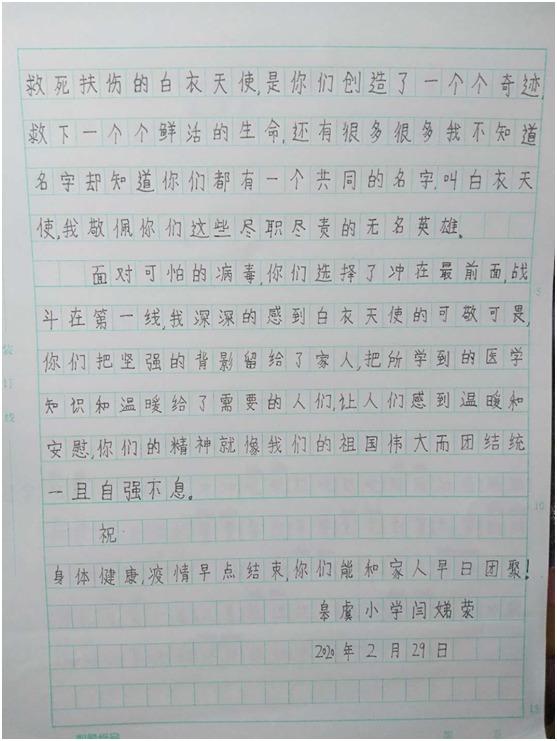 救死扶伤的白衣天使,是你们创造了一个个奇迹,
救下一个个鲜活的生命,还有很多很多我不知道
名字却知道你们都有一个共同的名字,叫白衣天
使,我敬佩你们这些尽职尽责的无名英雄。
面对可怕的病毒,你们选择了冲在最前面,战
斗在第一线,我深深的感到白衣天使的可敬可畏,
你们把坚强的背影留给了家人,把所学到的医学
知识和温暖给了需要的人们,让人们感到温暖和
安慰,你们的精神就像我们的祖国伟大而团结统
一且自强不息。
祝:
身体健康,疫情早点结束,你们能和家人早日团聚!
皋虞小学闫娣荣
2020年2月29日
装
订
线
5
10
15